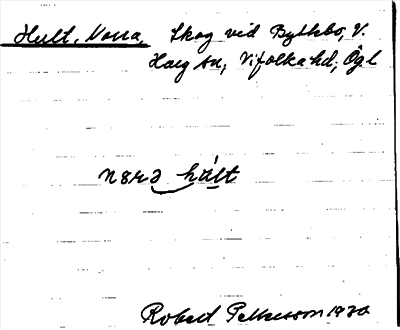 Hult, Norra, Skog vid Bytlebo, V.
Harg sn, Vifolka hd, Ögl
nɷrɘ hált
Robert Pettersson 1930